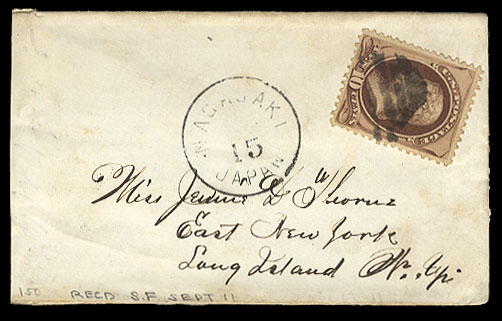 NAGASAKI
15
JAPAN
10
CENTS
Miss Jennie D. Thorne
East New York
Long Island N. Y.
150 RECD S.F SEPT 11